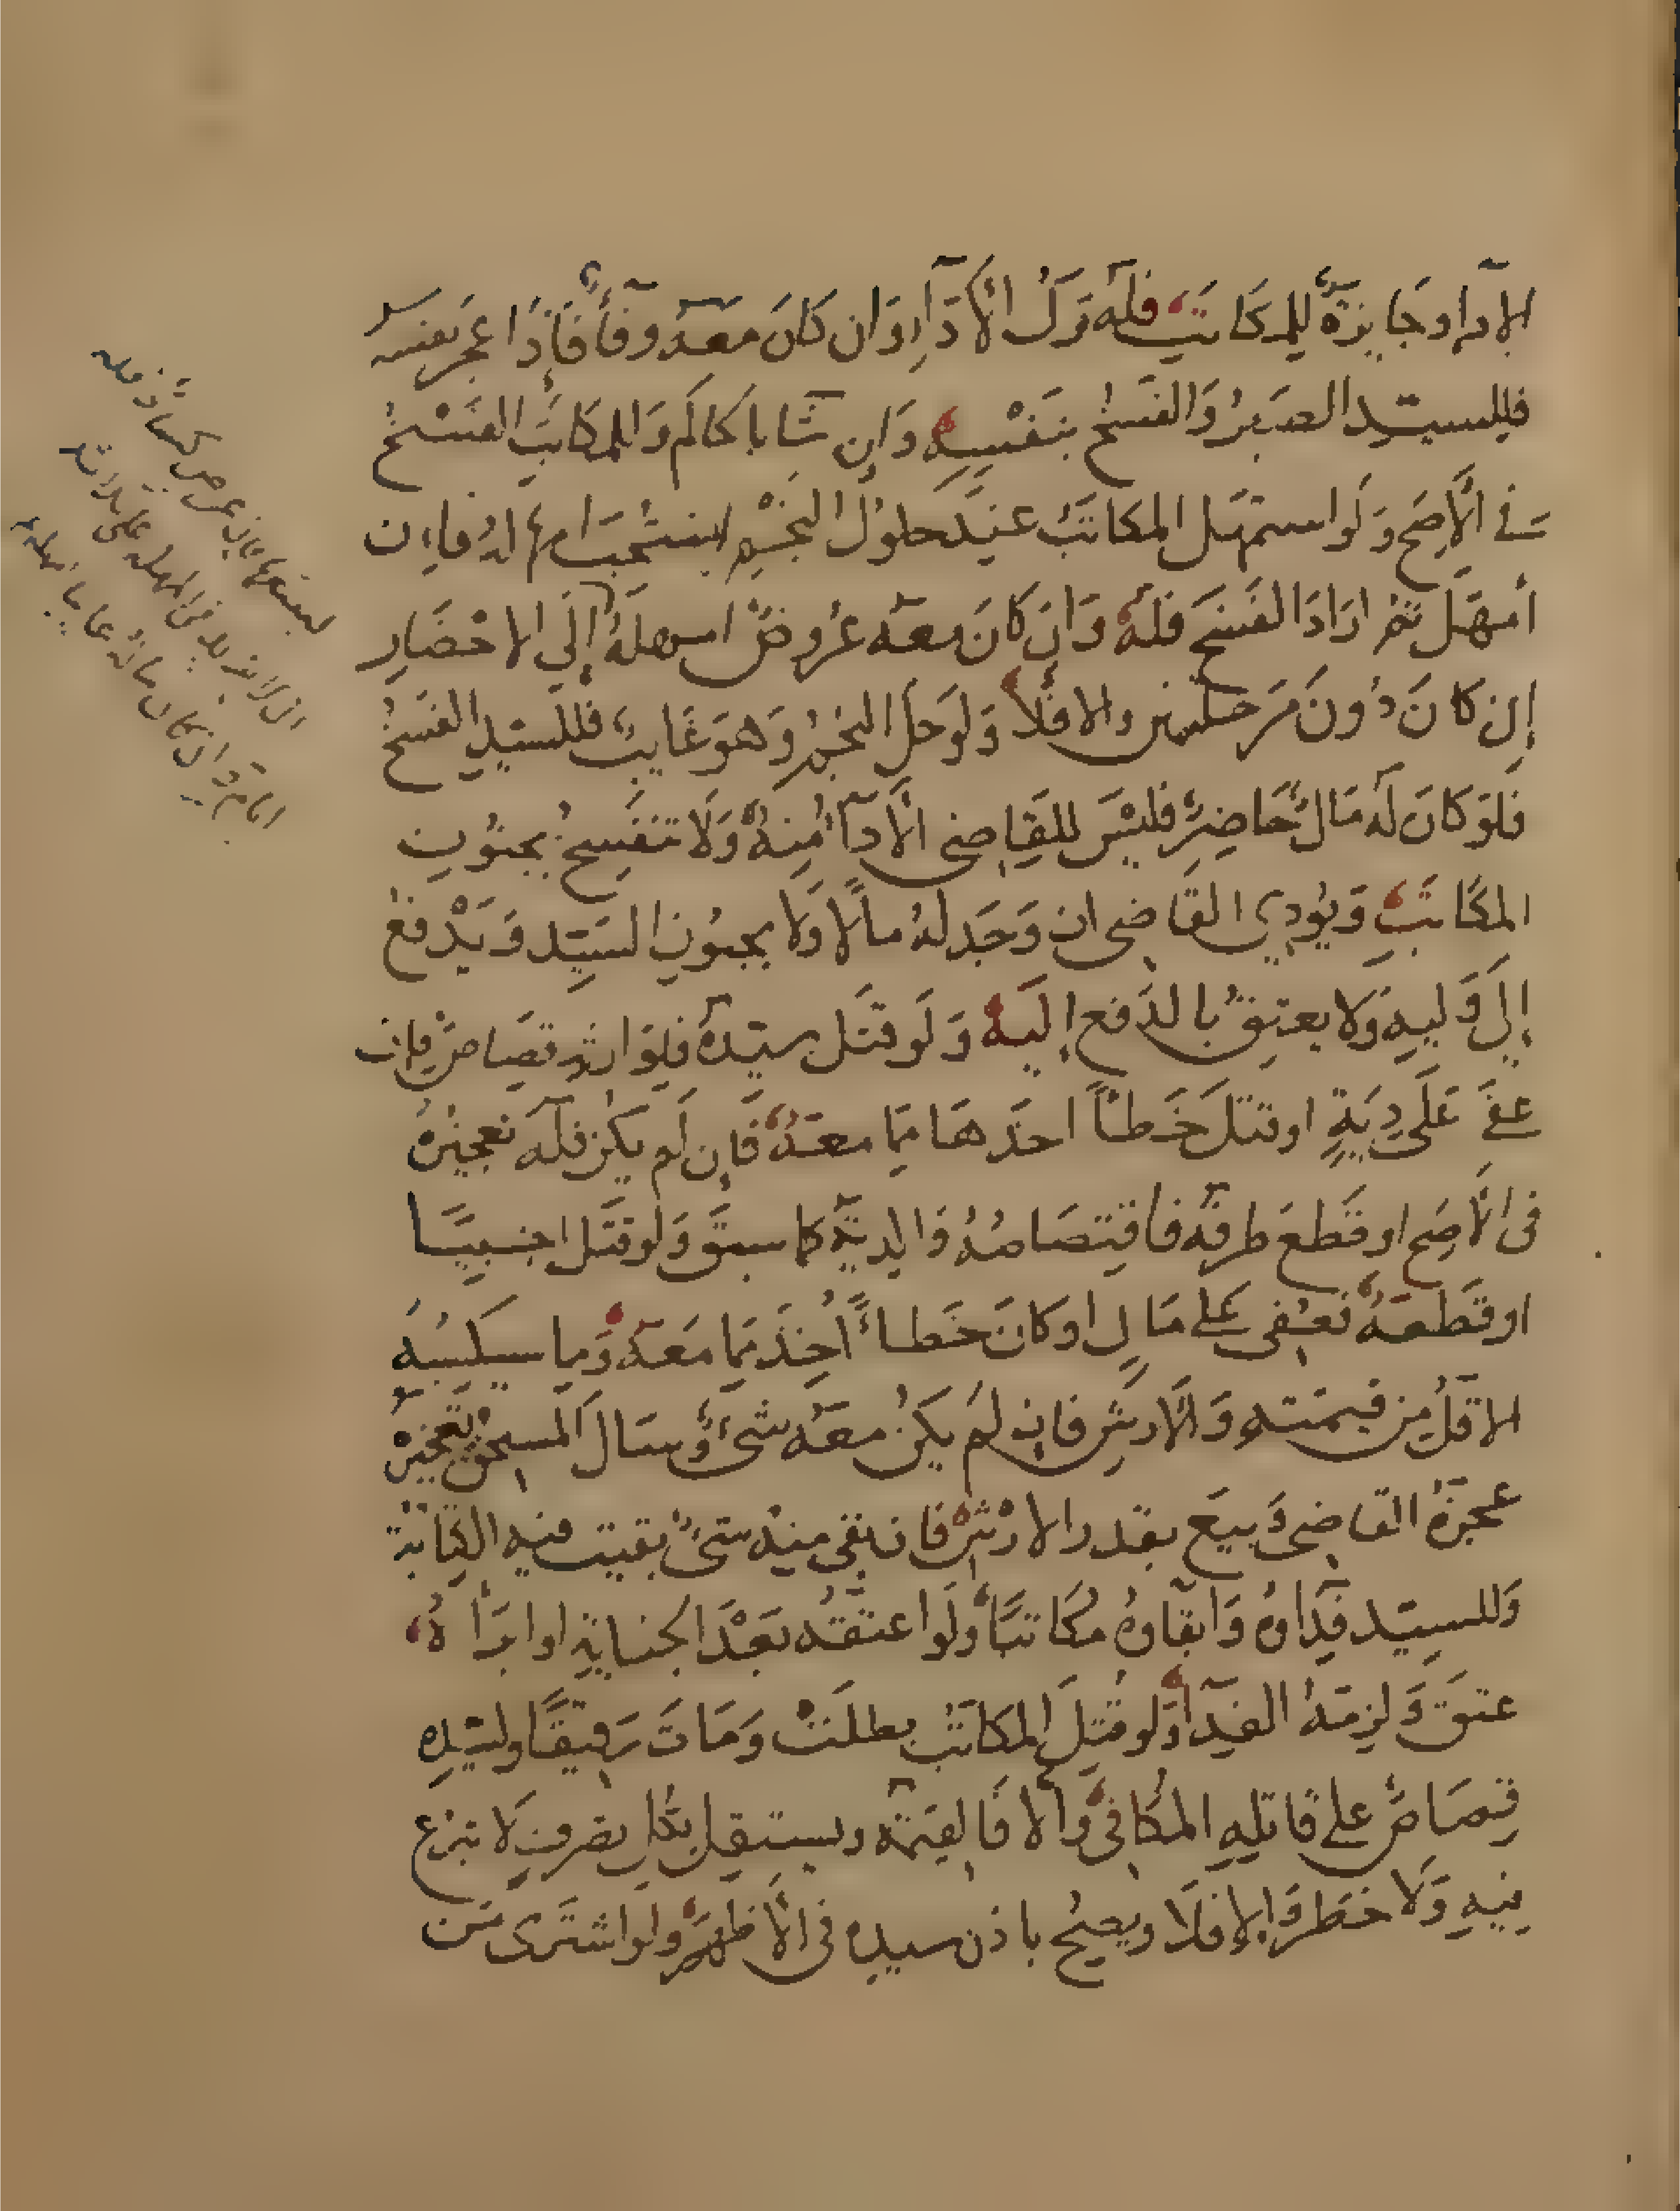 الاداء وجايزة للمكاتب فله ترك الاداء وان كان معه وفاء فاذا عجز نفسه
فللسيد الصبر والفسخ بنفسه وان شا بالحاكم وللمكاتب الفسخ
في الاصح ولو استمهل المكاتب عند حلول النجم استحب امهاله فان
أمهل ثم اراد الفسخ فله وان كان معه عروض امهله إلى الاحضار
إن كان دون مرحلتين والا فلا ولو حل النجم وهو غايب فللسيد الفسخ
فلو كان له مال حاضر فليس للقاضي الاداء منه ولا تنفسخ بجنون
المكاتب ويودي القاضي ان وجد له مالا ولا بجنون السيد ويدفع
إلى وليه ولا يعتق بالدفع إليه ولو قتل سيده فلوارثه قصاص فان
عفى على دية او قتل خطأ اخذها مما معه فإن لم يكن فله تعجيزه
في الاصح او قطع طرفه فاقتصاصه والدية كما سبق ولو قتل اجنبيا
او قطعه فعفى على مال او كان خطاء أخذ مما معه ومما سيكسبه
الاقل من قيمته والارش فان لم يكن معه شئ وسال المستحق تعجيزه
عجزه القاضي وبيع بقدر الارش فان بقى منه شئ بقيت فيه الكتابة
وللسيد فداوه وابقاوه مكاتبا ولو اعتقه بعد الجناية او ابراه
عتق ولزمه الفداء ولو قتل المكاتب بطلت ومات رقيقا ولسيده
قصاص على قاتله المكافئ والا فالقيمة ويستقل بكل تصرف لا تبرع
فيه ولا خطر والإ فلا ويصح باذن سيده في الاظهر ولو اشترى من